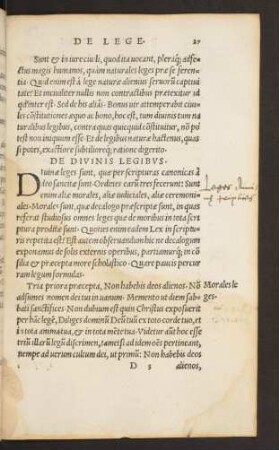 DE LEGE. 27
Sunt & in iure ciuili, quod ita uocant, pleraq; affe-
ctus magis humanos, quàm naturales leges præ se feren-
tia. Quid enim est à lege naturæ alienius seruorũ captiui-
tate? Et in ciuiler nullis non contractibus prætextur id
qd' interest. Sed de his aliâs. Bonus uir attemperabit ciui-
les cõstitutiones æquo ac bono, hoc est, tum diuinis tum na-
turalibus legibus, contra quas quicquid cõstituitur, nõ po-
test non iniquum esse. Et de legibus naturæ hactenus, quas
si potes, exactiore subtilioreq; ratione digerito.
DE DIVINIS LEGIBVS.
Diuinæ leges sunt, quæ per scripturas canonicas à
deo sancitæ sunt. Orderes earũ tres fecerunt: Sunt
enim aliæ morales, aliæ iudiciales, aliæ ceremoni-
ales. Morales sunt, quæ decalogo præscriptæ sunt, in quas
referat studiosus omnes leges quæ de moribus in tota scri-
ptura prodite sunt. Quoties enim eadem Lex in scriptu-
ris repetita est? Est autem obseruandum hic ne decalogum
exponamus de solis externis operibus, partiamurq; in cõ-
silia & præcepta more scholastico. Quare paucis percur-
ram legum formulas.
Tria priora præcepta, Non habebis deos alienos. Nõ Morales le
adsumes nomen dei tui in uanum. Memento ut diem sab- ges.
bati sanctifices. Non dubium est quin Christus exposuerit
per hãc legẽ, Diliges dominũ Deũ tuũ ex toto corde tuo, et
in tota anima tua, & in tota mẽte tua. Videtur aũt hoc esse
triũ illarũ legũ discrimen, tametsi ad idem oẽs pertineant,
nempe ad uerum cultum dei, ut primũ: Non habebis deos
D 3 alienos,